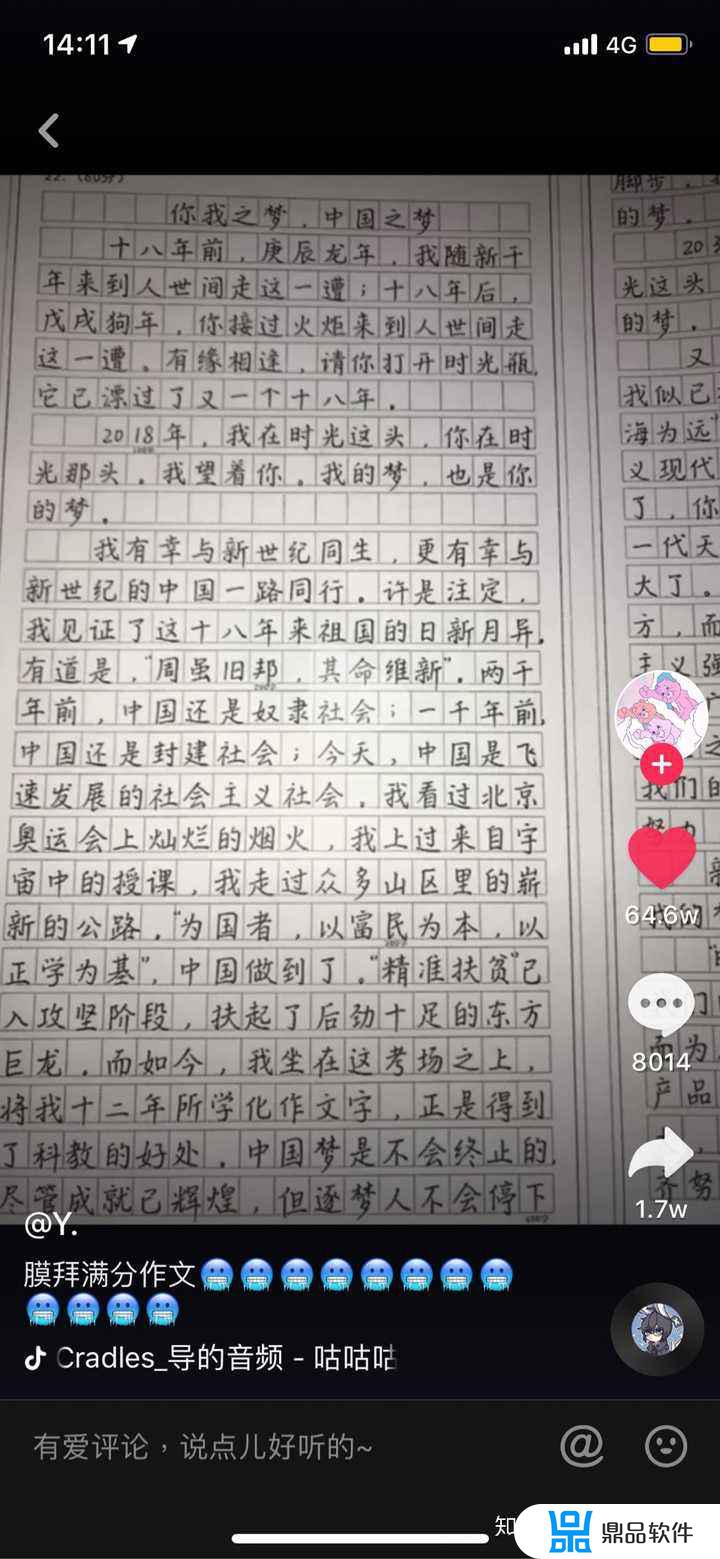 14:11
4G
22.（60分）
你我之梦，中国之梦
十八年前，庚辰龙年，我随新千
年来到人世间走这一遭；十八年后，
戊戌狗年，你接过火炬来到人世间走
这一遭。有缘相逢，请你打开时光瓶，
它已漂过了又一个十八年。
2018年，我在时光这头，你在时
光那头。我望着你。我的梦，也是你
的梦。
我有幸与新世纪同生，更有幸与
新世纪的中国一路同行。许是注定，
我见证了这十八年来祖国的日新月异。
有道是，“周虽旧邦，其命维新”。两千
年前，中国还是奴隶社会；一千年前，
中国还是封建社会；今天，中国是飞
速发展的社会主义社会。我看过北京
奥运会上灿烂的烟火，我上过来自宇
宙中的授课，我走过众多山区里的崭
新的公路。“为国者，以富民为本，以
正学为基”，中国做到了。“精准扶贫”已
入攻坚阶段，扶起了后劲十足的东方
巨龙。而如今，我坐在这考场之上，
将我十二年所学化作文字，正是得到
了科教的好处。中国梦是不会终止的，
尽管成就已辉煌，但逐梦人不会停下
脚步。
的梦。
20
光这头
的梦。
又
我似已
海为远”
义现代
了，你
一代天
大了。
方，而
主义强
之
我们的
努力
我们
而为
产品
齐努
64.6w
8014
1.7w
@Y.
膜拜满分作文🥶🥶🥶🥶🥶🥶🥶🥶
🥶🥶🥶🥶
Cradles_导的音频 - 咕咕咕
有爱评论，说点儿好听的~
知
鼎品软件